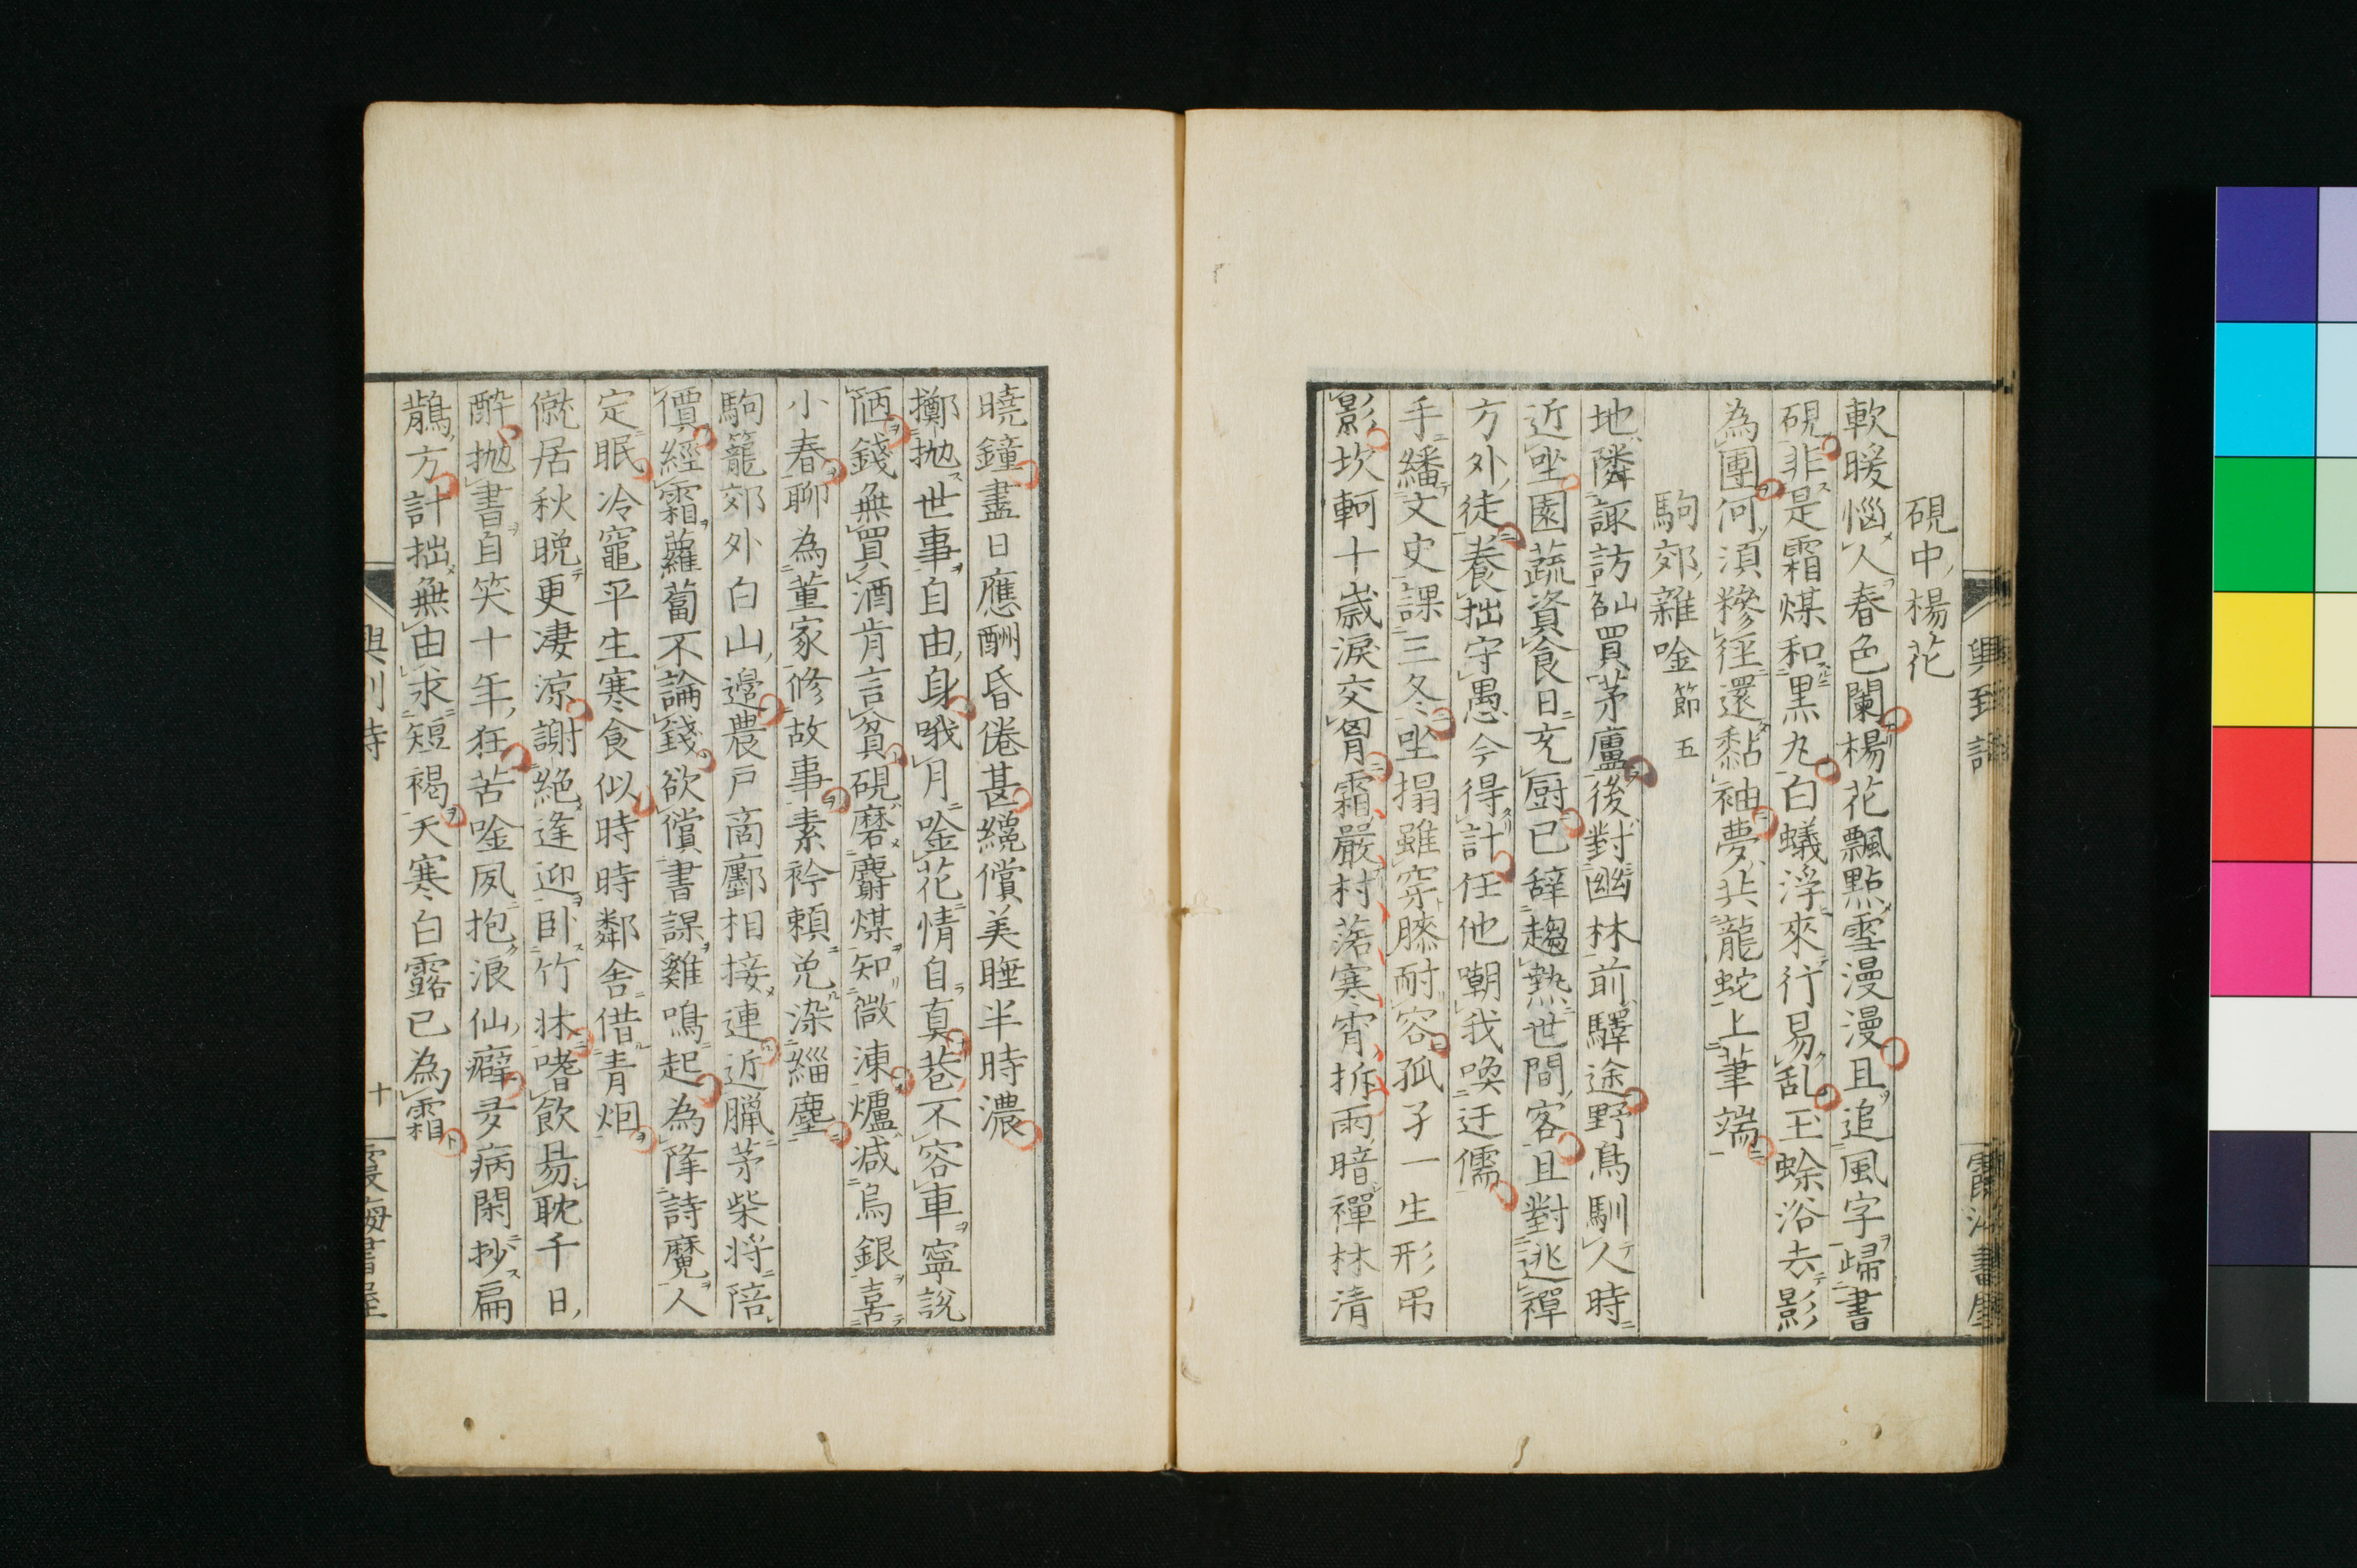 硯中楊花
軟暖惱人春色闌楊花飄點雪漫漫且追風字歸書
硯非是霜煤和黒丸白蟻浮來行易乱玉蜍浴去影
為團何須糝径還黏袖夢共龍蛇上筆端
駒郊雜唫節五
地隣諏訪𡶶買茅廬後對幽林前驛途野鳥馴人時
近坐園蔬資食日充厨已辞趨熱世間客且對逃禪
方外徒養拙守愚今得計任他嘲我喚迂儒
手繙文史課三冬坐搨雖穿膝耐容孤孑一生形吊
影坎軻十歳淚交胷霜嚴村落寒宵柝雨暗禪林清
曉鐘盡日應酬昏倦甚纔償美睡半時濃
擲抛世事自由身哦月唫花情自真巷不容車寧說
陋錢無買酒肯言貧硯磨麝煤知微凍爐減烏銀喜
小春聊為董家修故事素衿頼免染緇塵
駒籠郊外白山邉農戸商鄽相接連近臘茅柴将陪
價經霜蘿蔔不論錢欲償書課雞鳴起為降詩魔人
定眠冷竈平生寒食似時時鄰舎借青烟
僦居秋晚更凄涼謝絶逢迎卧竹牀嗜飲昜耽千日
酔抛書自笑十年狂苦唫夙抱浪仙癖多病閑抄扁
鵲方計拙無由求短褐天寒白露已為霜
十